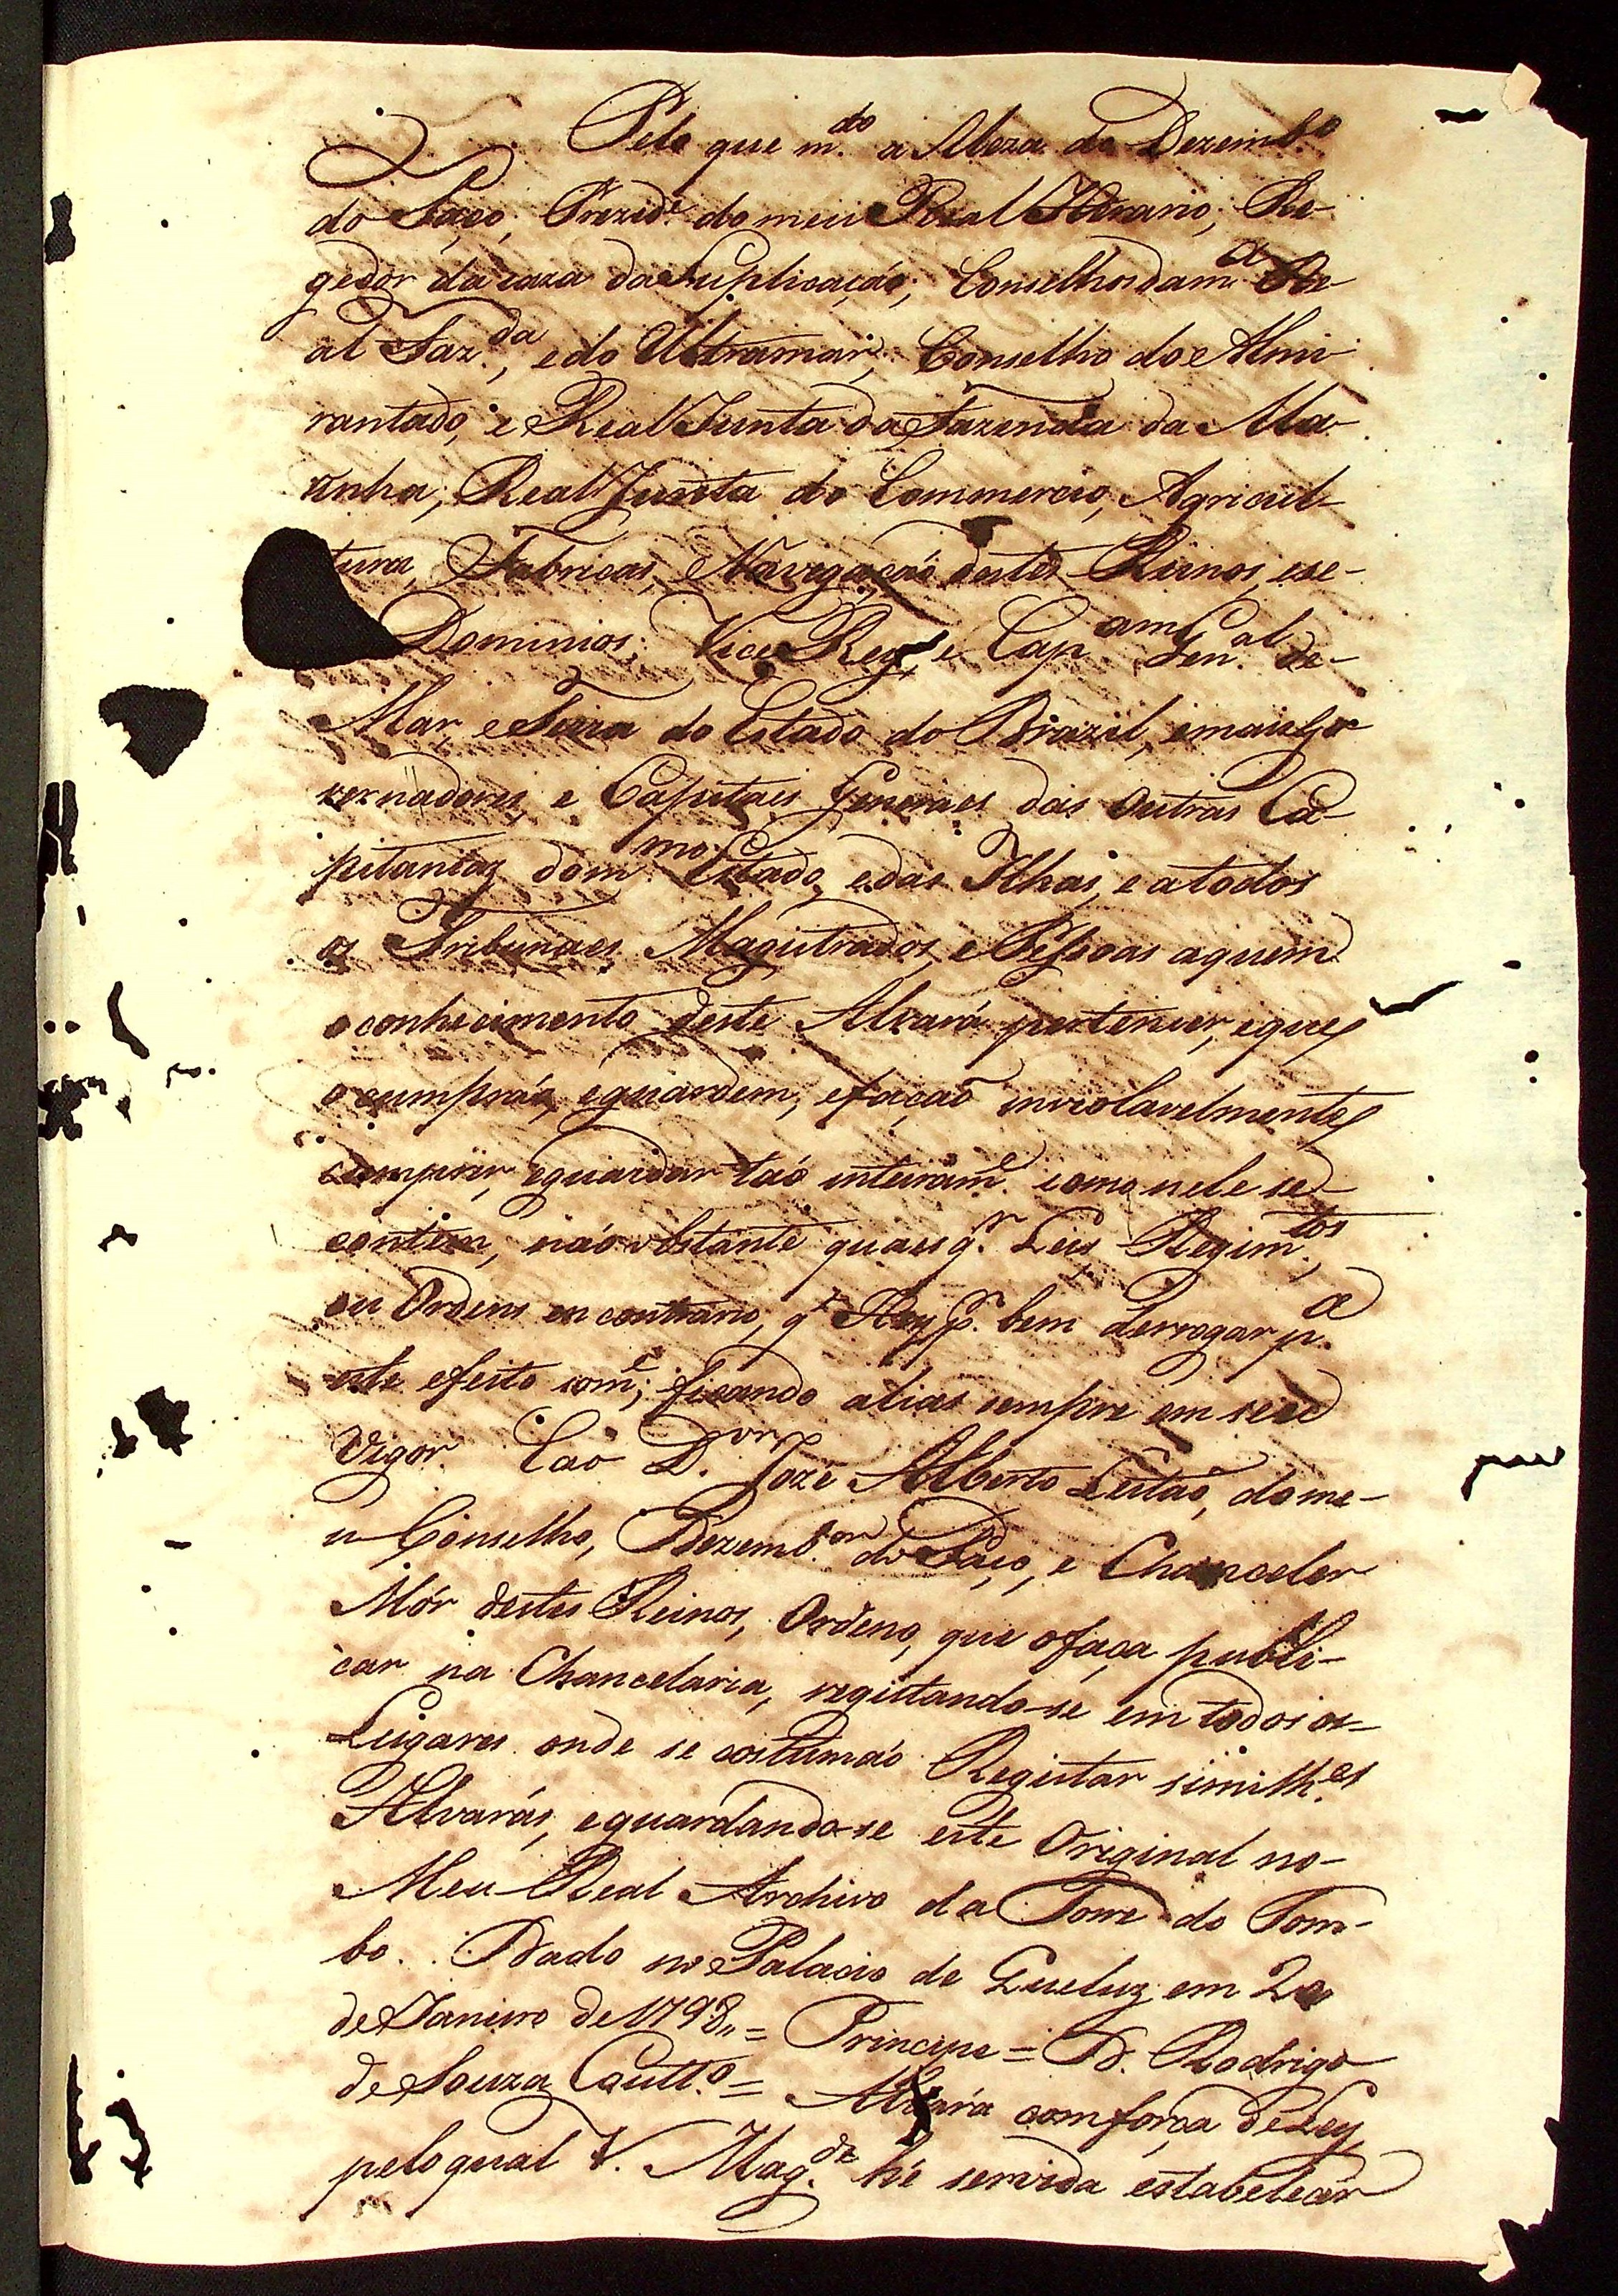 Pelo que m.do a Meza do Dezemb.o
do Paço, Prezid.e do meu Real Erario; Re-
gedor da caza da Suplicação; Conselhos da m.a Re-
al Faz.da, e do Ultramar; Conselho do Almi-
rantado, e Real Junta da Fazenda da Ma-
rinha; Real Junta do Commercio, Agricul-
tura, Fabricas, e Navegação destes Reinos, e se-
Dominios; Vice Rey, e Cap.am Gen.al de
Mar, e Terra do Estado do Brazil, e mais Go-
vernadores, e Capitais Generaes das Outras Ca-
pitanias do m.mo Estado, e das Ilhas, e a todos
os Tribunaes, Magistrados, e Pessoas a quem
o conhecimento deste Alvará pertencer, e que
o cumpráo, e guardem, e façaõ inviolavelmente
cumprir, e guardar taó inteiram.e como nele se
contém, naó obstante quaes q.r Leis, Regim.tos,
ou Ordens em contrario, q.e Hey p.r bem derrogar p.a
este efeito som.e; ficando alias sempre em seu
Vigor. E ao D.or Jozé Alberto Leitaõ, do me-
u Conselho, Dezemb.or do Paço, e Chanceler
Mór destes Reinos, Ordeno, que o faça publi-
car na Chancelaria, registando-se em todos os
Lugares onde se costumaó Registar similh.es
Alvarás, e guardando-se este Original no-
Meu Real Archivo da Torre do Tom-
bo. Dado no Palacio de Queluz em 20
de Janeiro de 1798,, = Principe = D. Rodrigo
de Souza Coutt.o = Alvará com força de Ley,
pelo qual V. Mag.de hé servida estabelecer